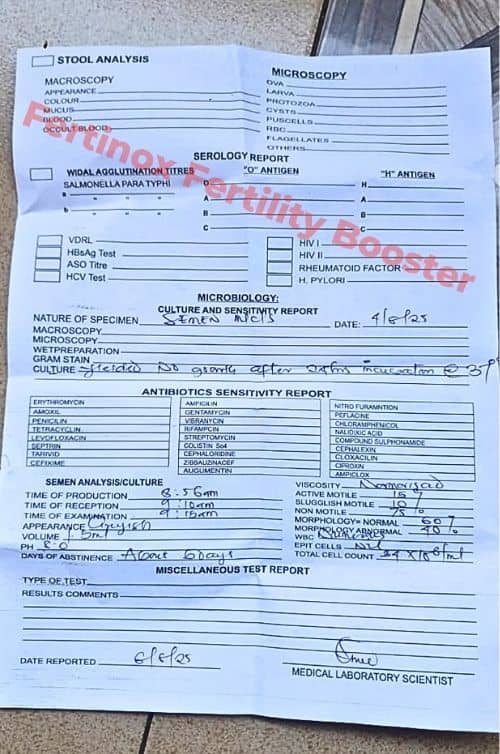 STOOL ANALYSIS
MACROSCOPY
APPEARANCE
COLOUR
MUCUS
BLOOD
OCCULT BLOOD:
MICROSCOPY
OVA
LARVA
PROTOZOA
CYSTS
PUSCELLS
RBC
FLAGELLATES
OTHERS
Fertinox Fertility Booster
SEROLOGY REPORT
WIDAL AGGLUTINATION TITRES "O" ANTIGEN "H" ANTIGEN
SALMONELLA PARA TYPHI O H
a " " " A A
b " " " B B
C C
VDRL
HBsAg Test
ASO Titre
HCV Test
HIV I
HIV II
RHEUMATOID FACTOR
H. PYLORI
MICROBIOLOGY:
CULTURE AND SENSITIVITY REPORT
NATURE OF SPECIMEN Semen M/C/S DATE: 4/8/25
MACROSCOPY
MICROSCOPY
WETPREPARATION
GRAM STAIN
CULTURE Yielded No growth after 24hrs incubation @ 37
ANTIBIOTICS SENSITIVITY REPORT
ERYTHROMYCIN
AMOXIL
PENICILIN
TETRACYCLIN
LEVOFLOXACIN
SEPTRIN
TARIVID
CEFIXIME
AMPICILIN
GENTAMYCIN
VIBRANYCIN
RIFAMPCIN
STREPTOMYCIN
COLISTIN So4
CEPHALORIDINE
ZIBBAUZINACEF
AUGUMENTIN
NITRO FURAMNTION
PEFLACINE
CHLORAMPHENICOL
NALIDIXIC ACID
COMPOUND SULPHONAMIDE
CEPHALEXIN
CLOXACILIN
CIPROXIN
AMPICLOX
SEMEN ANALYSIS/CULTURE
TIME OF PRODUCTION 8:56am
TIME OF RECEPTION 9:10am
TIME OF EXAMINATION 9:15am
APPEARANCE Greyish
VOLUME 1.5ml
PH 8.0
DAYS OF ABSTINENCE About 6 days
VISCOSITY
ACTIVE MOTILE 15%
SLUGGLISH MOTILE 10%
NON MOTILE 75%
MORPHOLOGY= NORMAL 60%
MORPHOLOGY ABNORMAL 40%
WBC
EPIT CELLS Nil
TOTAL CELL COUNT 34 X 10^6/ml
MISCELLANEOUS TEST REPORT
TYPE OF TEST
RESULTS COMMENTS
DATE REPORTED 6/8/25
MEDICAL LABORATORY SCIENTIST